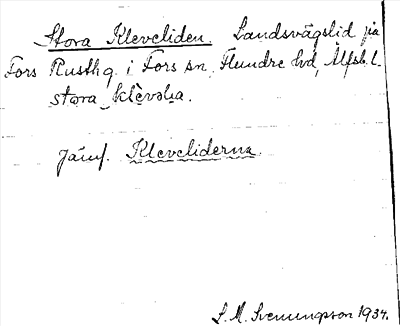 Stora Kleveliden. Landsvägslid på
Fors Rusthg. i Fors sn, Flundre hd, Älfsb. l.
stora klevəlia.
Jämf. Kleveliderna.
S. M. Svenungsson 1934.